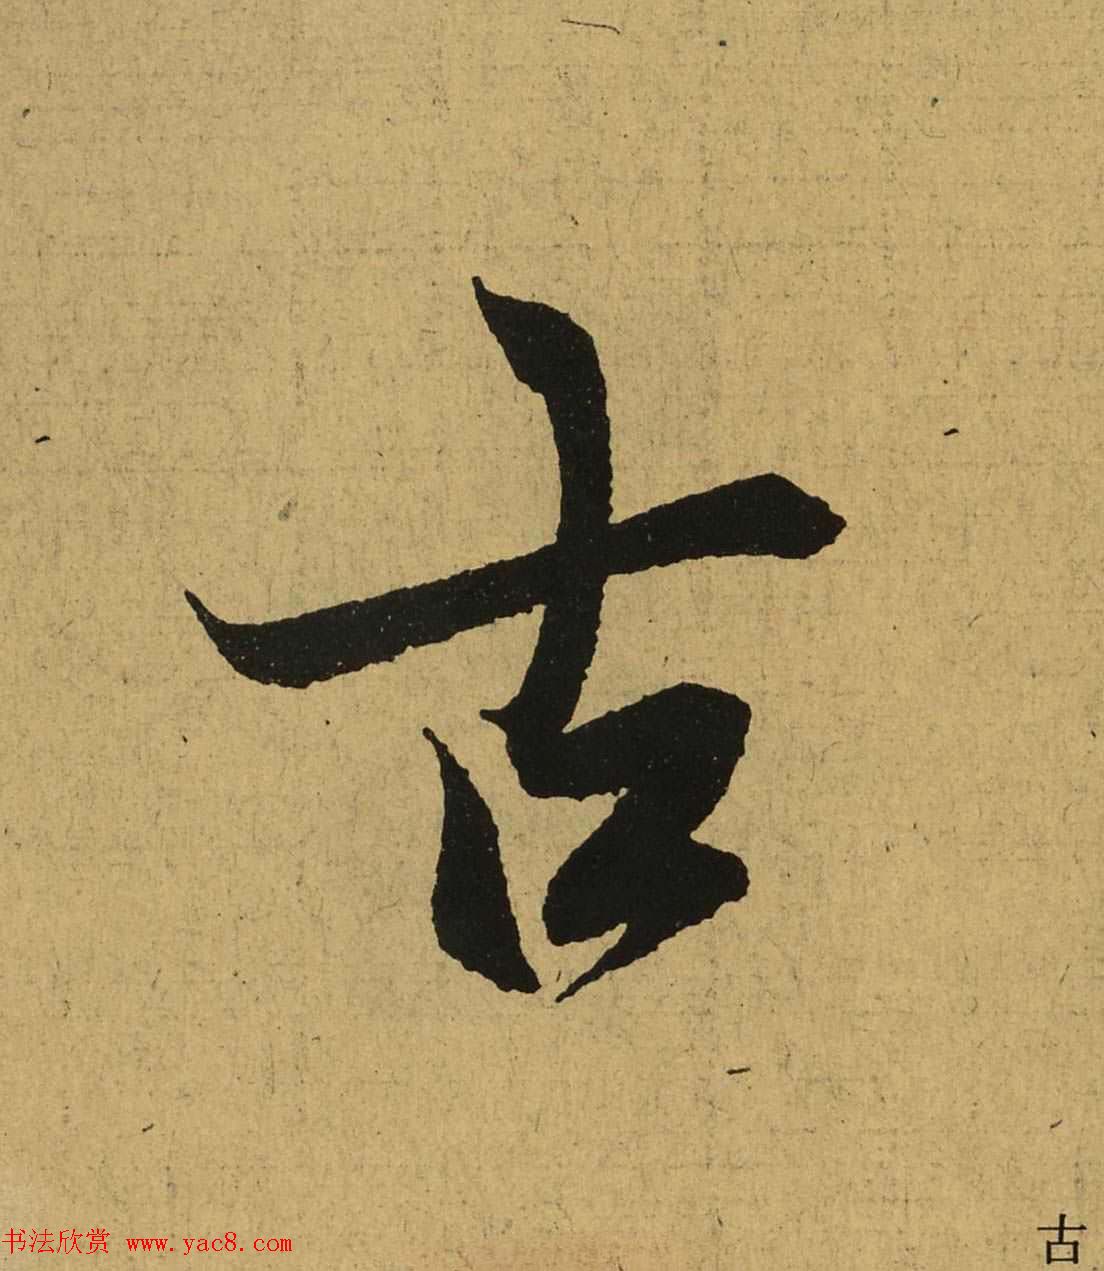 古
书法欣赏 www.yac8.com
古